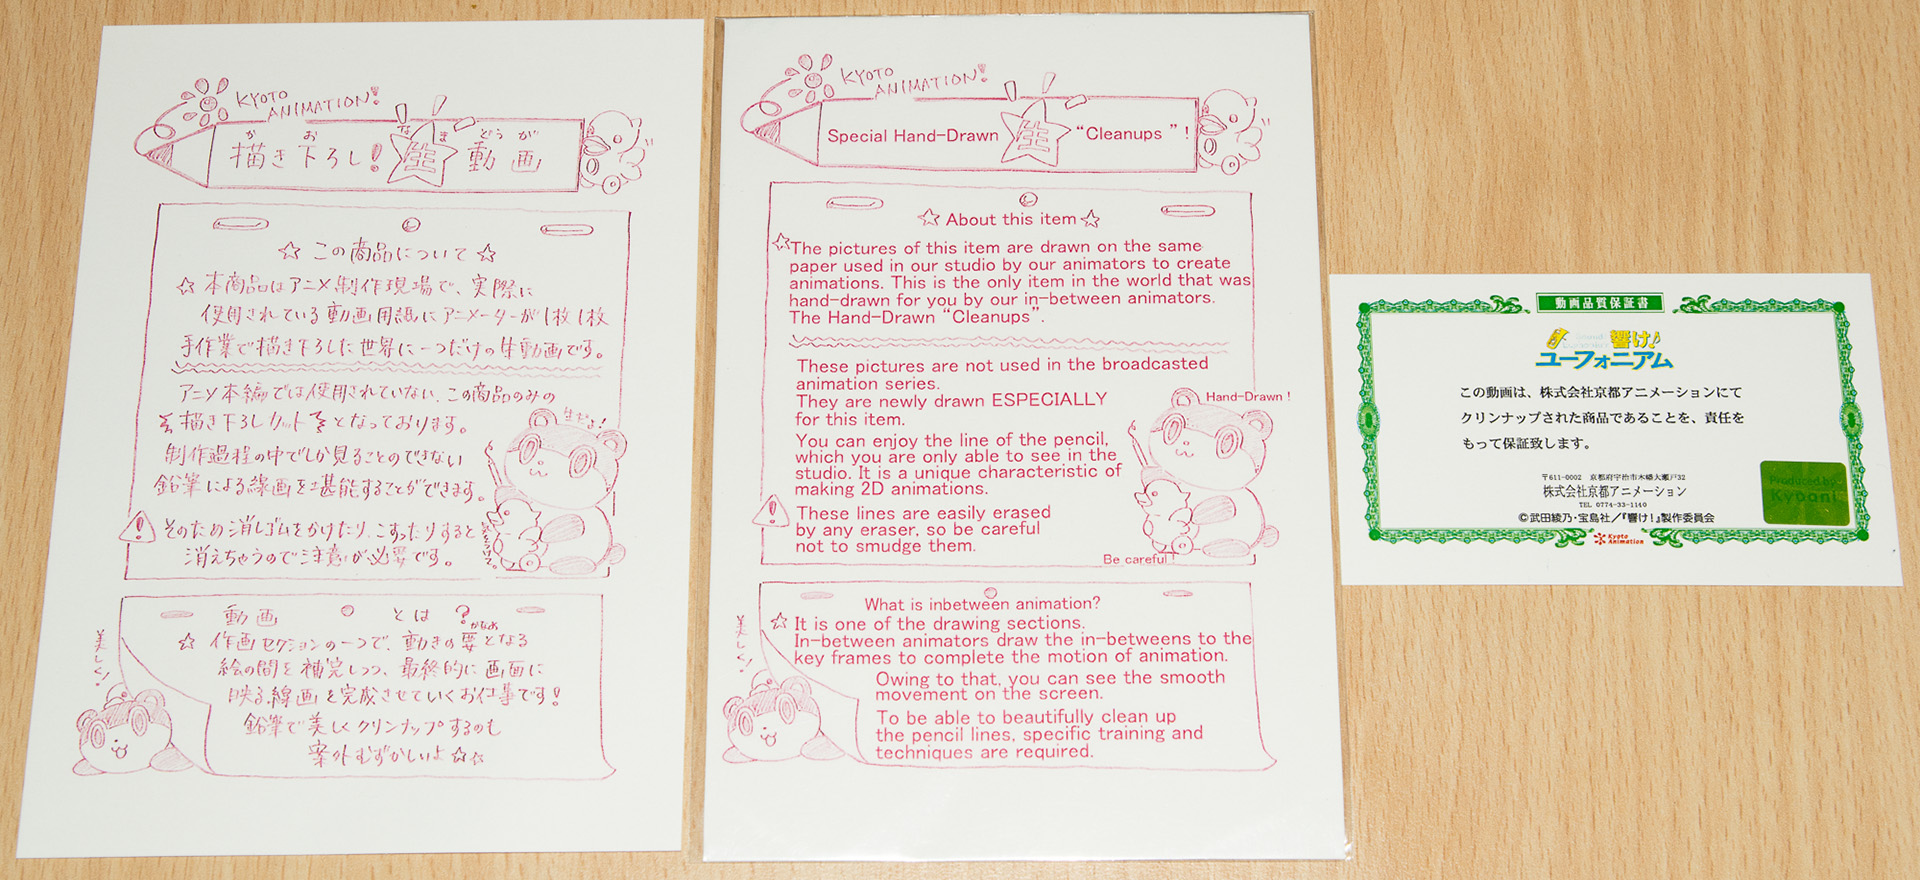 KYOTO
ANIMATION!
か お なま どう が
描き下ろし! 生 動画
☆ この商品について ☆
☆ 本商品はアニメ制作現場で、実際に
使用されている動画用紙にアニメーターが1枚1枚
手作業で描き下ろした世界に一つだけの生動画です。
アニメ本編では使用されていない、この商品のみの
描き下ろしカットとなっております。
生だよ!
制作過程の中でしか見ることのできない
鉛筆による線画を堪能することができます。
そのため消しゴムをかけたり、こすったりすると
消えちゃうので注意が必要です。
気をつけて。
動画 とは ?
かなめ
☆ 作画セクションの一つで、動きの要となる
絵の間を補完しつつ、最終的に画面に
映る線画を完成させていくお仕事です!
鉛筆で美しくクリンナップするのも
案外むずかしいよ☆☆
美しく!
KYOTO
ANIMATION!
Special Hand-Drawn 生 “Cleanups ”!
☆ About this item ☆
☆The pictures of this item are drawn on the same
paper used in our studio by our animators to create
animations. This is the only item in the world that was
hand-drawn for you by our in-between animators.
The Hand-Drawn “Cleanups”.
These pictures are not used in the broadcasted
animation series.
They are newly drawn ESPECIALLY
for this item.
Hand-Drawn !
You can enjoy the line of the pencil,
which you are only able to see in the
studio. It is a unique characteristic of
making 2D animations.
These lines are easily erased
by any eraser, so be careful
not to smudge them.
Be careful !
What is inbetween animation?
☆ It is one of the drawing sections.
In-between animators draw the in-betweens to the
key frames to complete the motion of animation.
Owing to that, you can see the smooth
movement on the screen.
To be able to beautifully clean up
the pencil lines, specific training and
techniques are required.
美しく!
動画品質保証書
響け!
ユーフォニアム
この動画は、株式会社京都アニメーションにて
クリンナップされた商品であることを、責任を
もって保証致します。
〒611-0002 京都府宇治市木幡大瀬戸32
株式会社京都アニメーション
TEL 0774-33-1140
©武田綾乃・宝島社/『響け!』製作委員会
Produced by
Kyoani
Kyoto
Animation